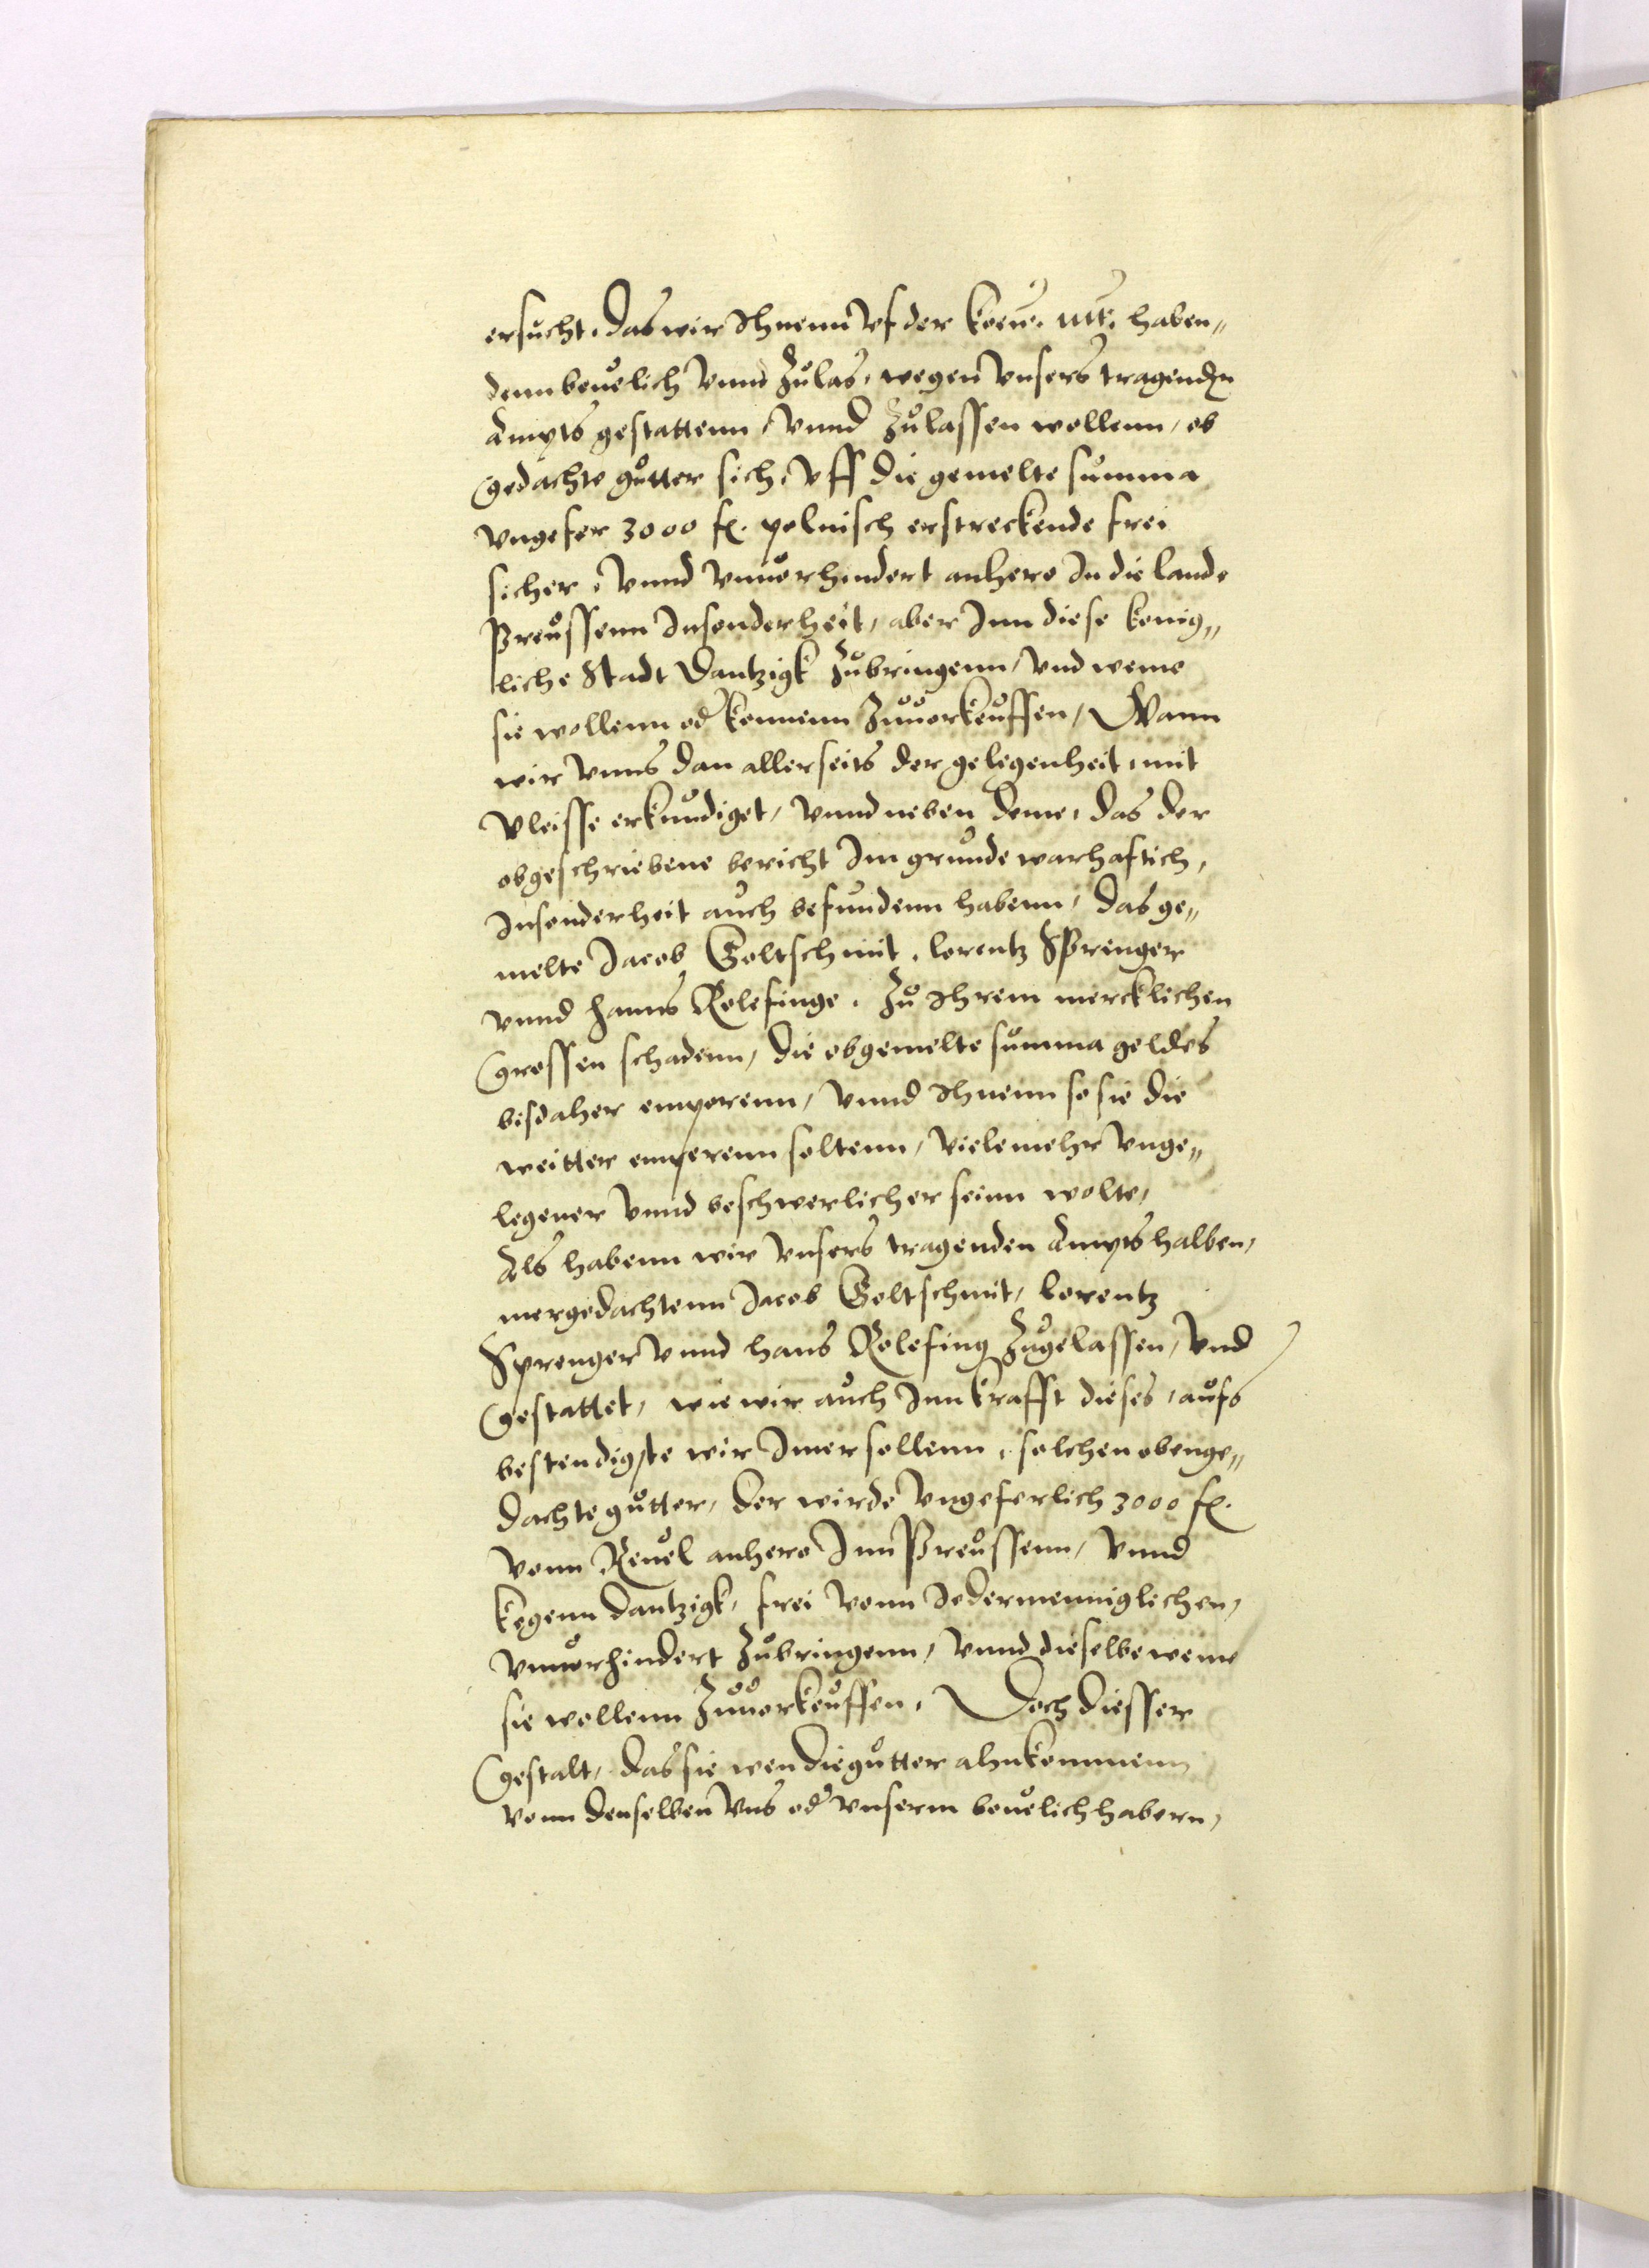 ersucht, das wir Ihnenn vf der koen. Mt. haben„
denn beuelich vnnd Zulas, wegen vnsers tragenden
Ampts gestattenn, vnnd Zulassen wollenn, ob
gedachte gutter sich, vff die gemelte summa
vngefer 3000 fl. polnisch erstreckende frei
sicher, vnnd vnuorhindert anhero In die lande
Preussenn Insonderheit, aber Inn diese konig„
liche Stadt Dantzigk Zubringenn, vnd weme
sie wollenn od konnenn Zuuorkeuffen, Wann
wir vnns dan allerseits der gelegenheit, mit
vleisse erkundiget, vnnd neben deme, das der
obgeschriebene bericht Im grunde warhaftich,
Insonderheit auch befundenn habenn, das ge„
melte Jacob Goltschmit, Lorentz Sprenger
vnnd Hanns Rolefinge, Zu Ihrem mercklichen
grossen schadenn, die obgemelte summa geldes
bisdaher emperenn, vnnd Ihnenn so sie die
weitter emperenn soltenn, viele mehr vnge„
legener vnnd beschwerlicher seinn wolte,
Als habenn wir vnsers tragenden Ampts halben,
mergedachtenn Jacob Goltschmit, Lorentz
Sprenger vnnd Hans Rolefing Zugelassen, vnd
gestattet, wie wir auch Inn krafft dieses, aufs
bestendigste wir Imer sollenn, solchen obenge„
dachte gutter, der wirde vngeferlich 3000 fl.
vonn Reuel anhero Inn Preussenn, vnnd
kegenn Dantzigk, frei vonn Jedermenniglichen,
vnuorhindert Zubringenn, vnnd dieselbe weme
sie wollenn Zuuorkeuffen, Doch diesser
gestalt, das sie wen die gutter ahnkommenn
vonn denselben vns od vnserm beuelichhabern,